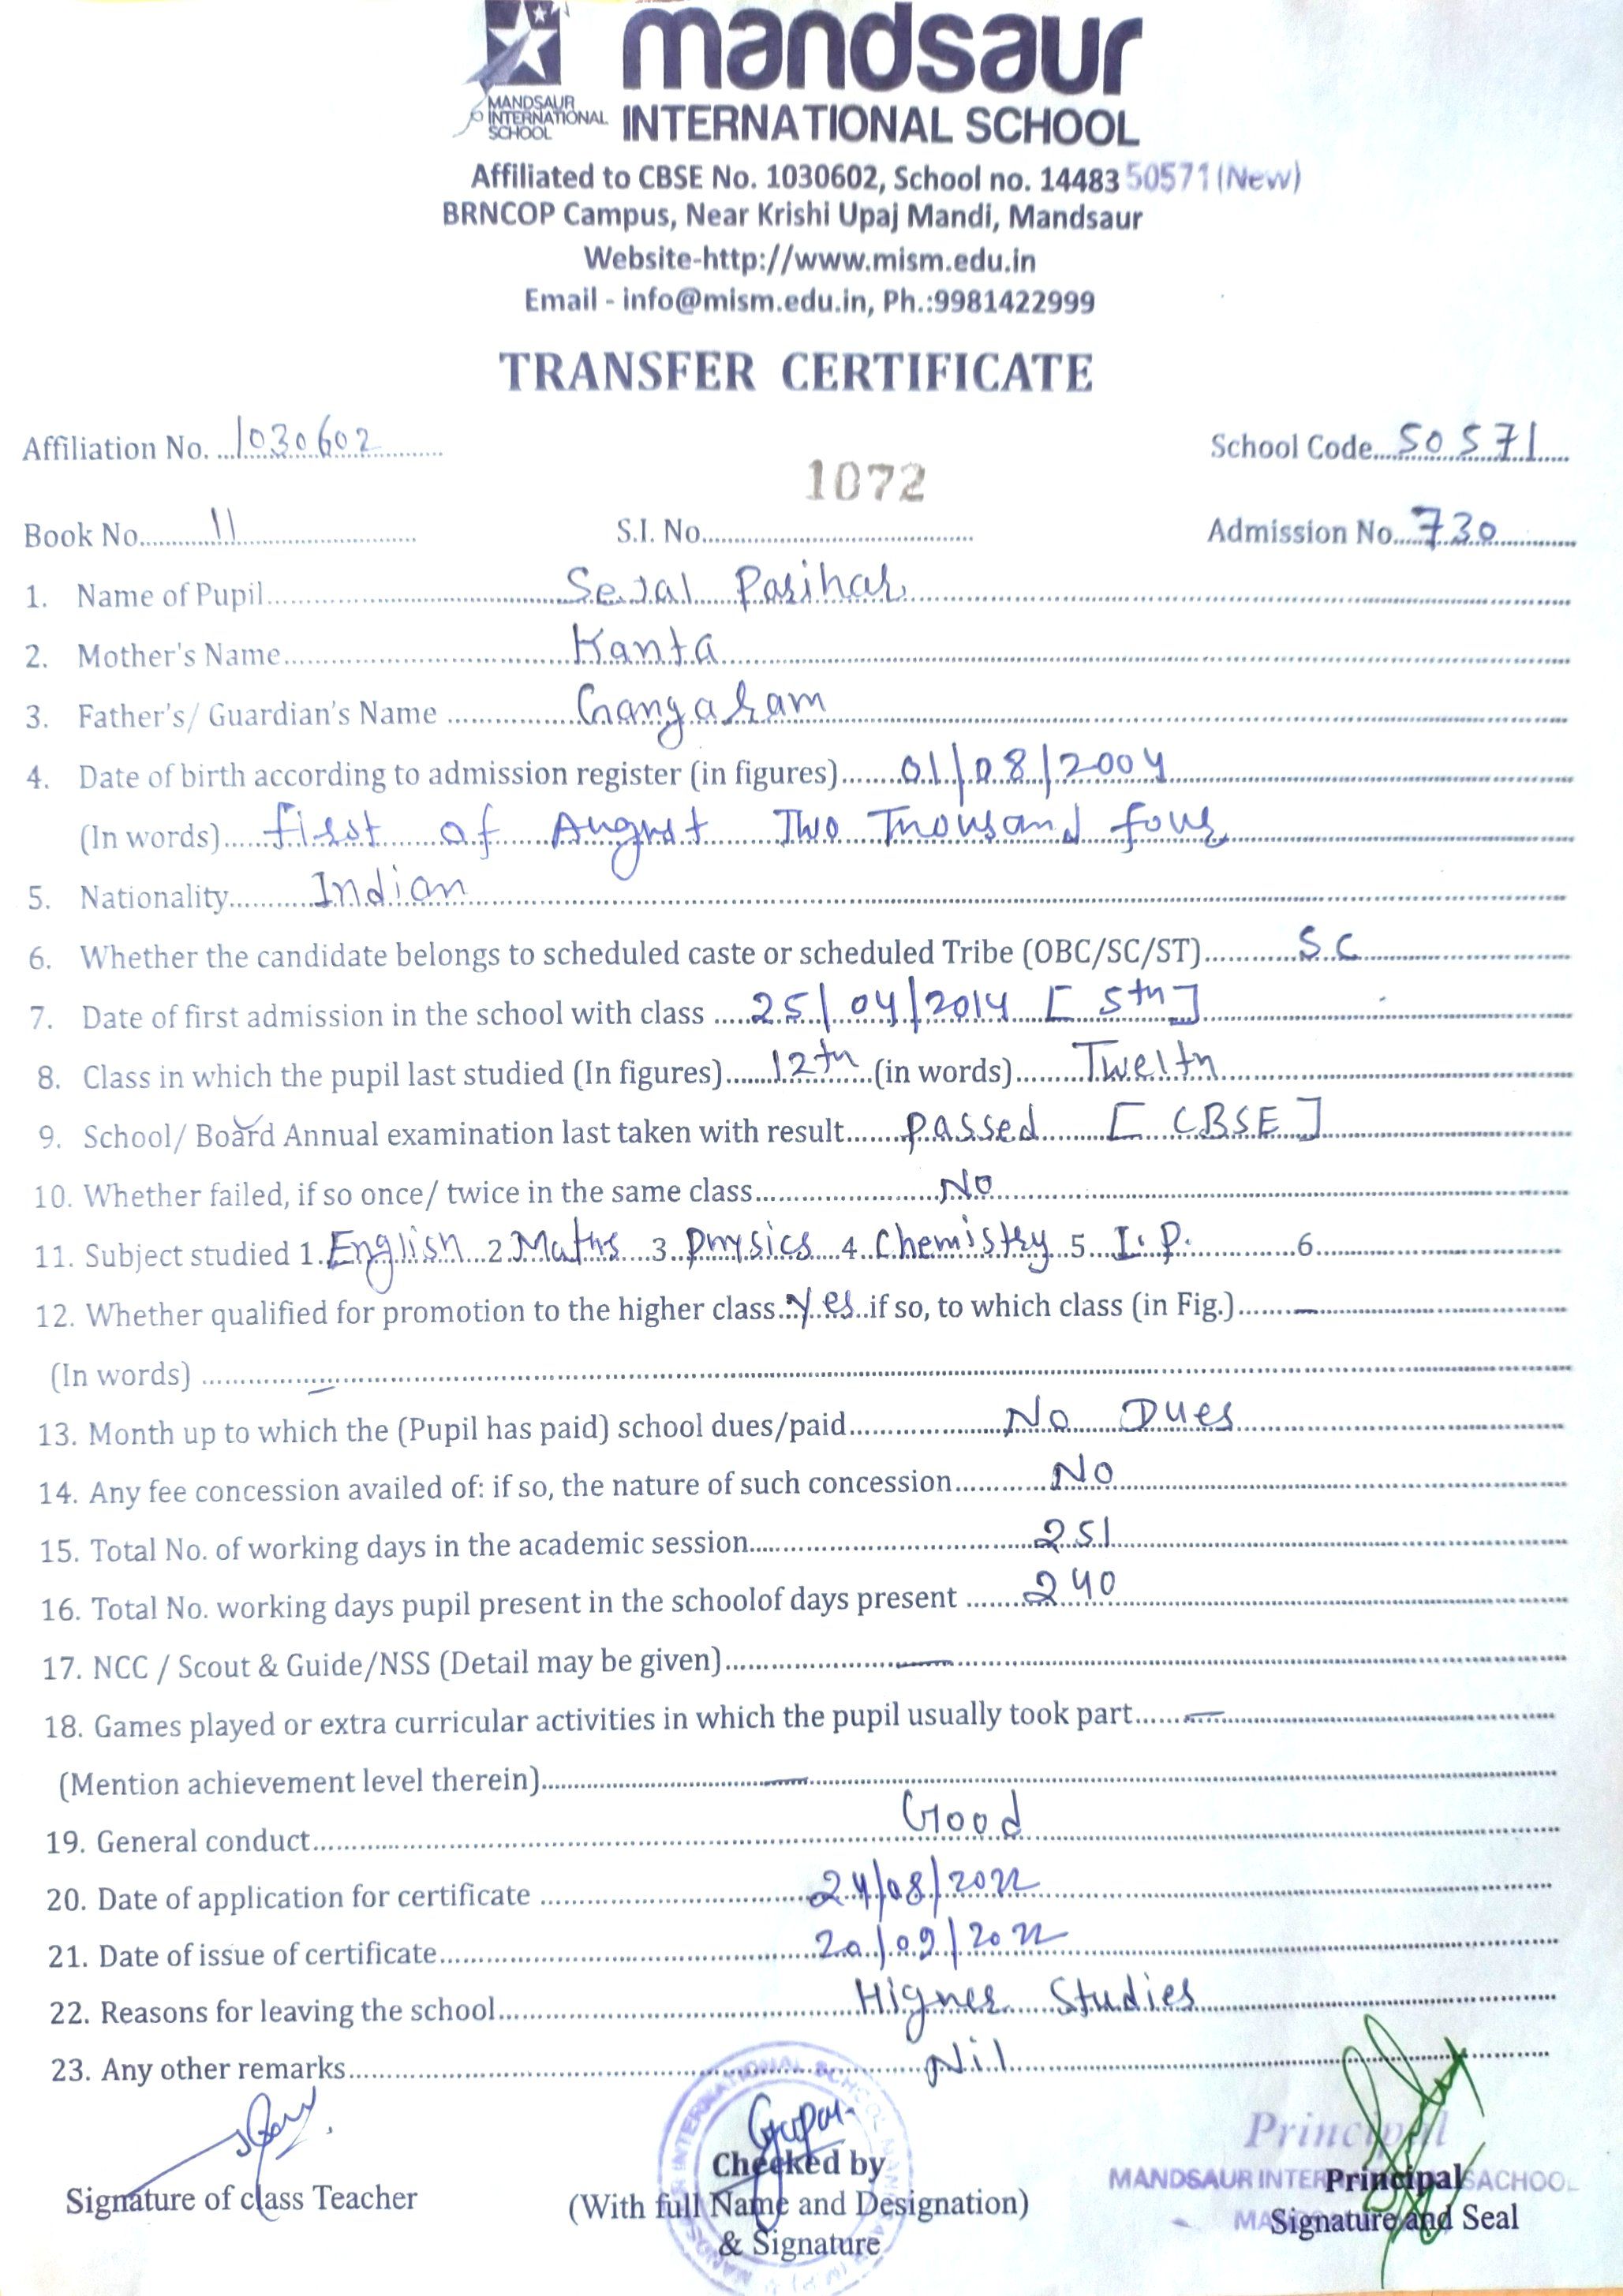 MANDSAUR
INTERNATIONAL
SCHOOL
mandsaur
INTERNATIONAL SCHOOL
Affiliated to CBSE No. 1030602, School no. 14483 50571 (New)
BRNCOP Campus, Near Krishi Upaj Mandi, Mandsaur
Website-http://www.mism.edu.in
Email - info@mism.edu.in, Ph.:9981422999
TRANSFER CERTIFICATE
Affiliation No. 1030602 School Code 50571
1072
Book No. 11 S.I. No. Admission No. 730
1. Name of Pupil Sejal Parihar
2. Mother's Name Kanta
3. Father's/ Guardian's Name Gangaram
4. Date of birth according to admission register (in figures) 01/08/2004
(In words) first of August Two Thousand four
5. Nationality Indian
6. Whether the candidate belongs to scheduled caste or scheduled Tribe (OBC/SC/ST) S.C
7. Date of first admission in the school with class 25/04/2014 [5th]
8. Class in which the pupil last studied (In figures) 12th (in words) Twelth
9. School/ Board Annual examination last taken with result passed [CBSE]
10. Whether failed, if so once/ twice in the same class No
11. Subject studied 1. English 2. Maths 3. Physics 4. Chemistry 5. I.P. 6.
12. Whether qualified for promotion to the higher class Yes if so, to which class (in Fig.) —
(In words) —
13. Month up to which the (Pupil has paid) school dues/paid No Dues
14. Any fee concession availed of: if so, the nature of such concession No
15. Total No. of working days in the academic session 251
16. Total No. working days pupil present in the schoolof days present 240
17. NCC / Scout & Guide/NSS (Detail may be given) —
18. Games played or extra curricular activities in which the pupil usually took part —
(Mention achievement level therein) —
19. General conduct Good
20. Date of application for certificate 24/08/2022
21. Date of issue of certificate 20/09/2022
22. Reasons for leaving the school Higher Studies
23. Any other remarks Nil
Principal
Checked by MANDSAUR INTER Principal SACHOOL
Signature of class Teacher (With full Name and Designation) Signature and Seal
& Signature